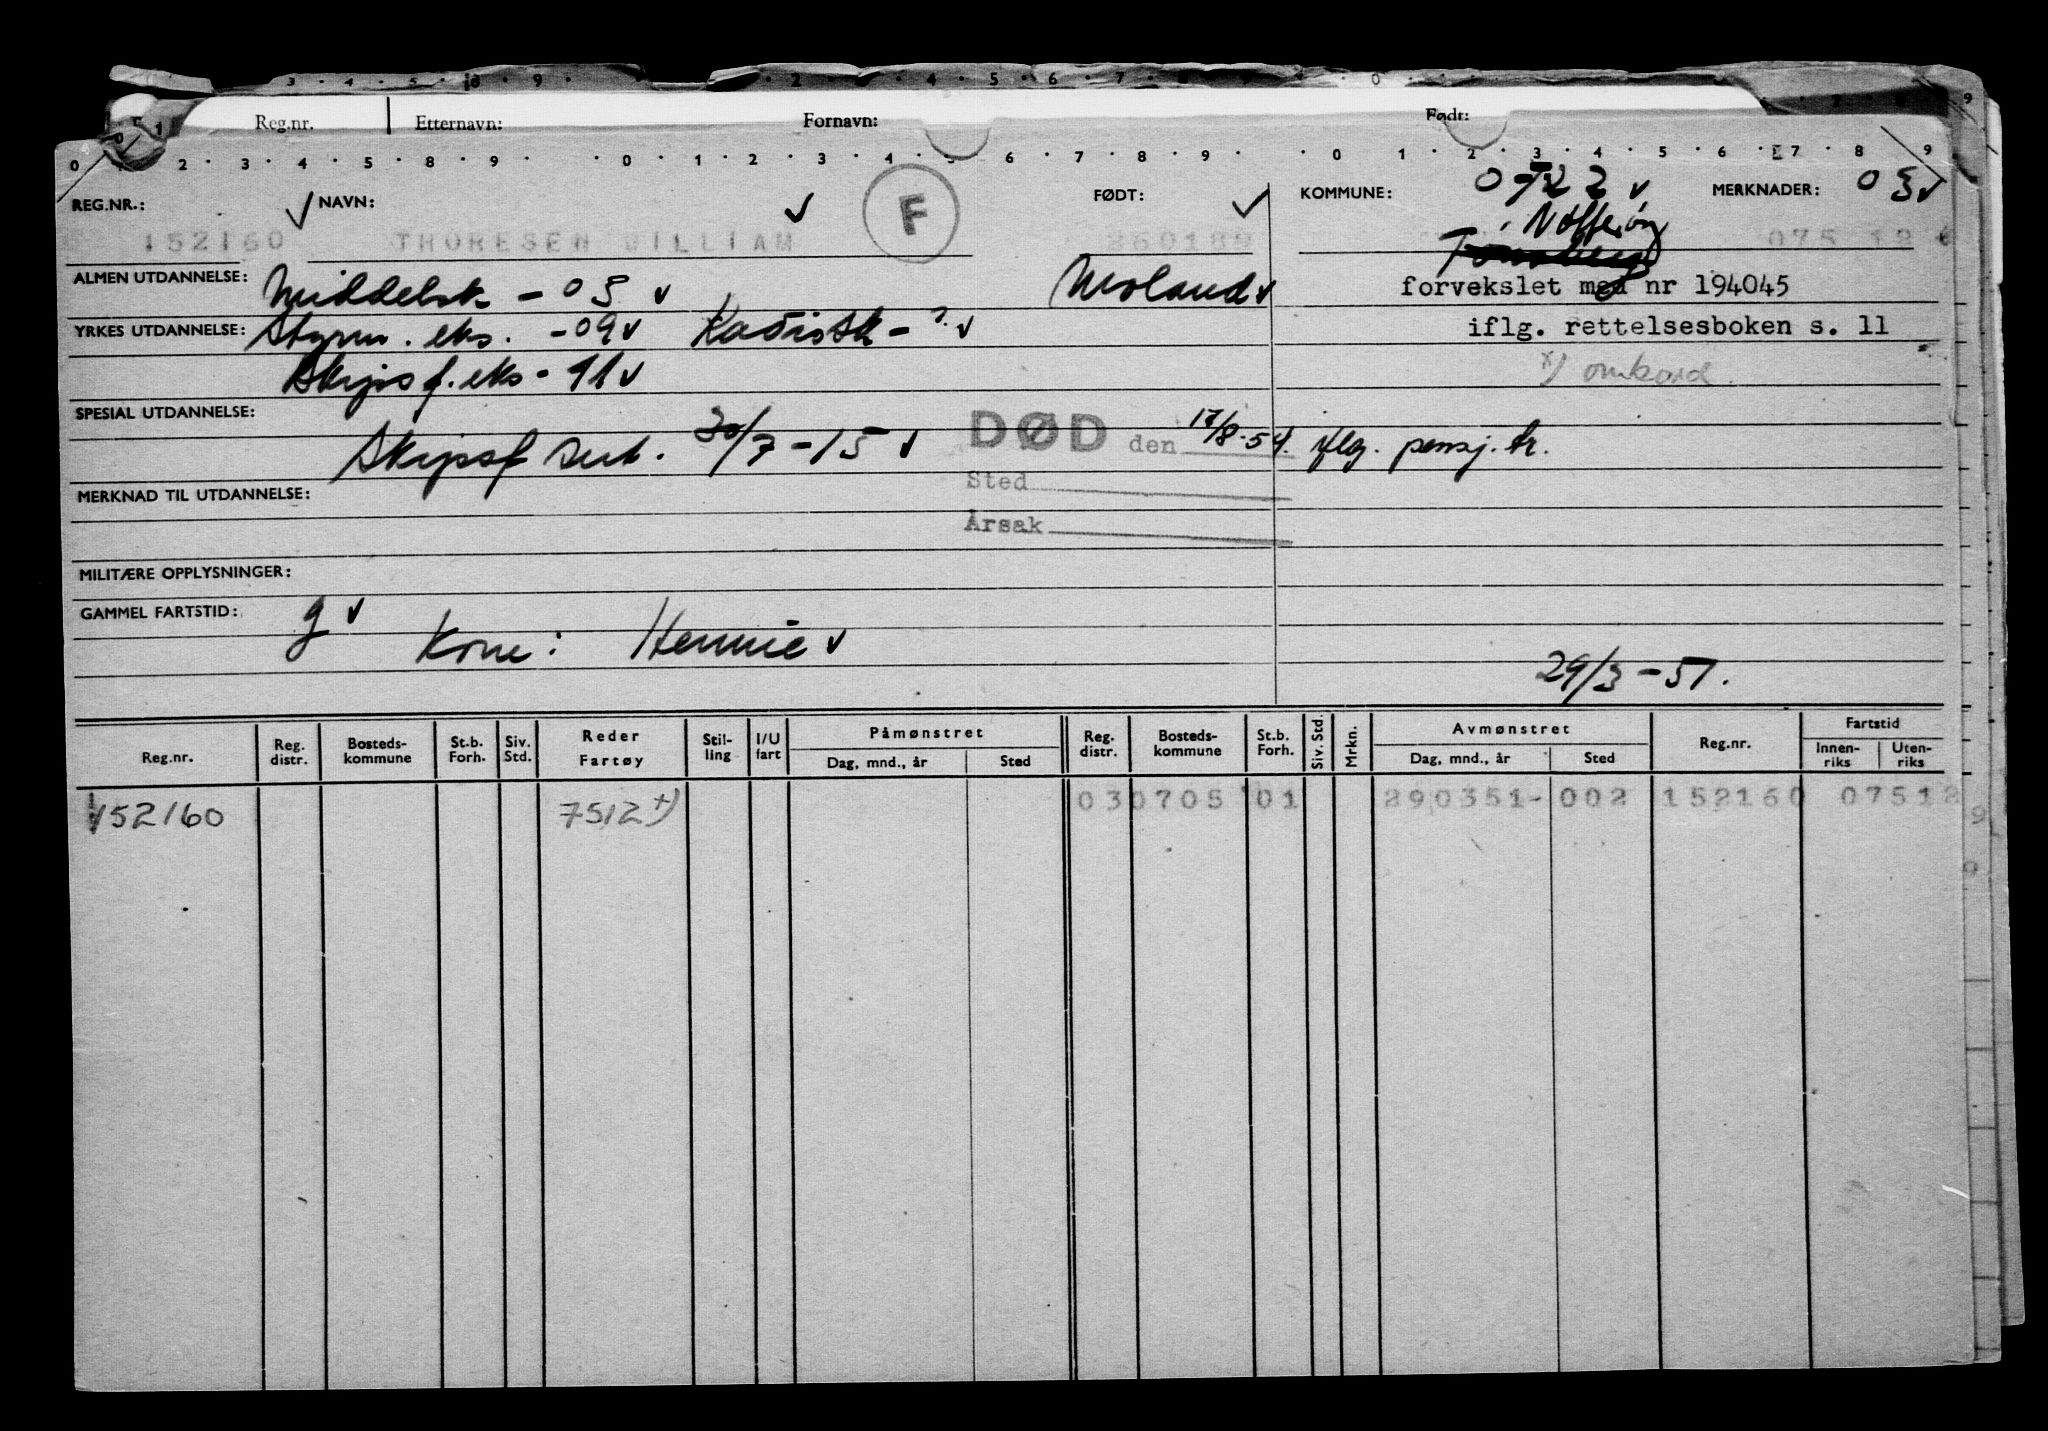 3 . 4 . 5 . 8 . 9 . 2 . 4 . 5 . 6 . 7 . 8 . 9 . 0
Reg.nr. Etternavn: Fornavn: Født:
0 1 2 . 3 . 4 . 5 . 8 . 9 . . 0 . 1 . 2 . 3 . 4 . 5 6 . 7 . 8 . 9 . . 0 1 . 2 . 3 . 4 . 5 . 6 . 7 . 8 . 9
REG.NR.: NAVN: F FØDT: KOMMUNE: 0722 MERKNADER: 03
Nøtterøy
152160 THORESEN WILLIAM 260189 075 12
Tønsberg
ALMEN UTDANNELSE: Middelsk - 05 Moland
forvekslet med nr 194045
YRKES UTDANNELSE: Styrm. eks. - 09 Radiosk - ?
iflg. rettelsesboken s. 11
Skipsf. eks - 11
x) omkord.
SPESIAL UTDANNELSE:
Skipsf sert. 30/7 - 15 DØD den 17/8-54. iflg. pensj. tr.
Sted
MERKNAD TIL UTDANNELSE:
Årsak
MILITÆRE OPPLYSNINGER:
GAMMEL FARTSTID: g
Kone: Hennie
29/3 - 51.
Reg.nr. Reg. distr. Bosteds-kommune St.b. Forh. Siv. Std. Reder Fartøy Stil-ling I/U fart Påmønstret Dag, mnd., år Sted Reg. distr. Bosteds-kommune St.b. Forh. Siv. Std. Mrkn. Avmønstret Dag, mnd., år Sted Reg.nr. Fartstid Innen-riks Uten-riks
152160 7512 +) 030705 01 290351- 002 152160 07512